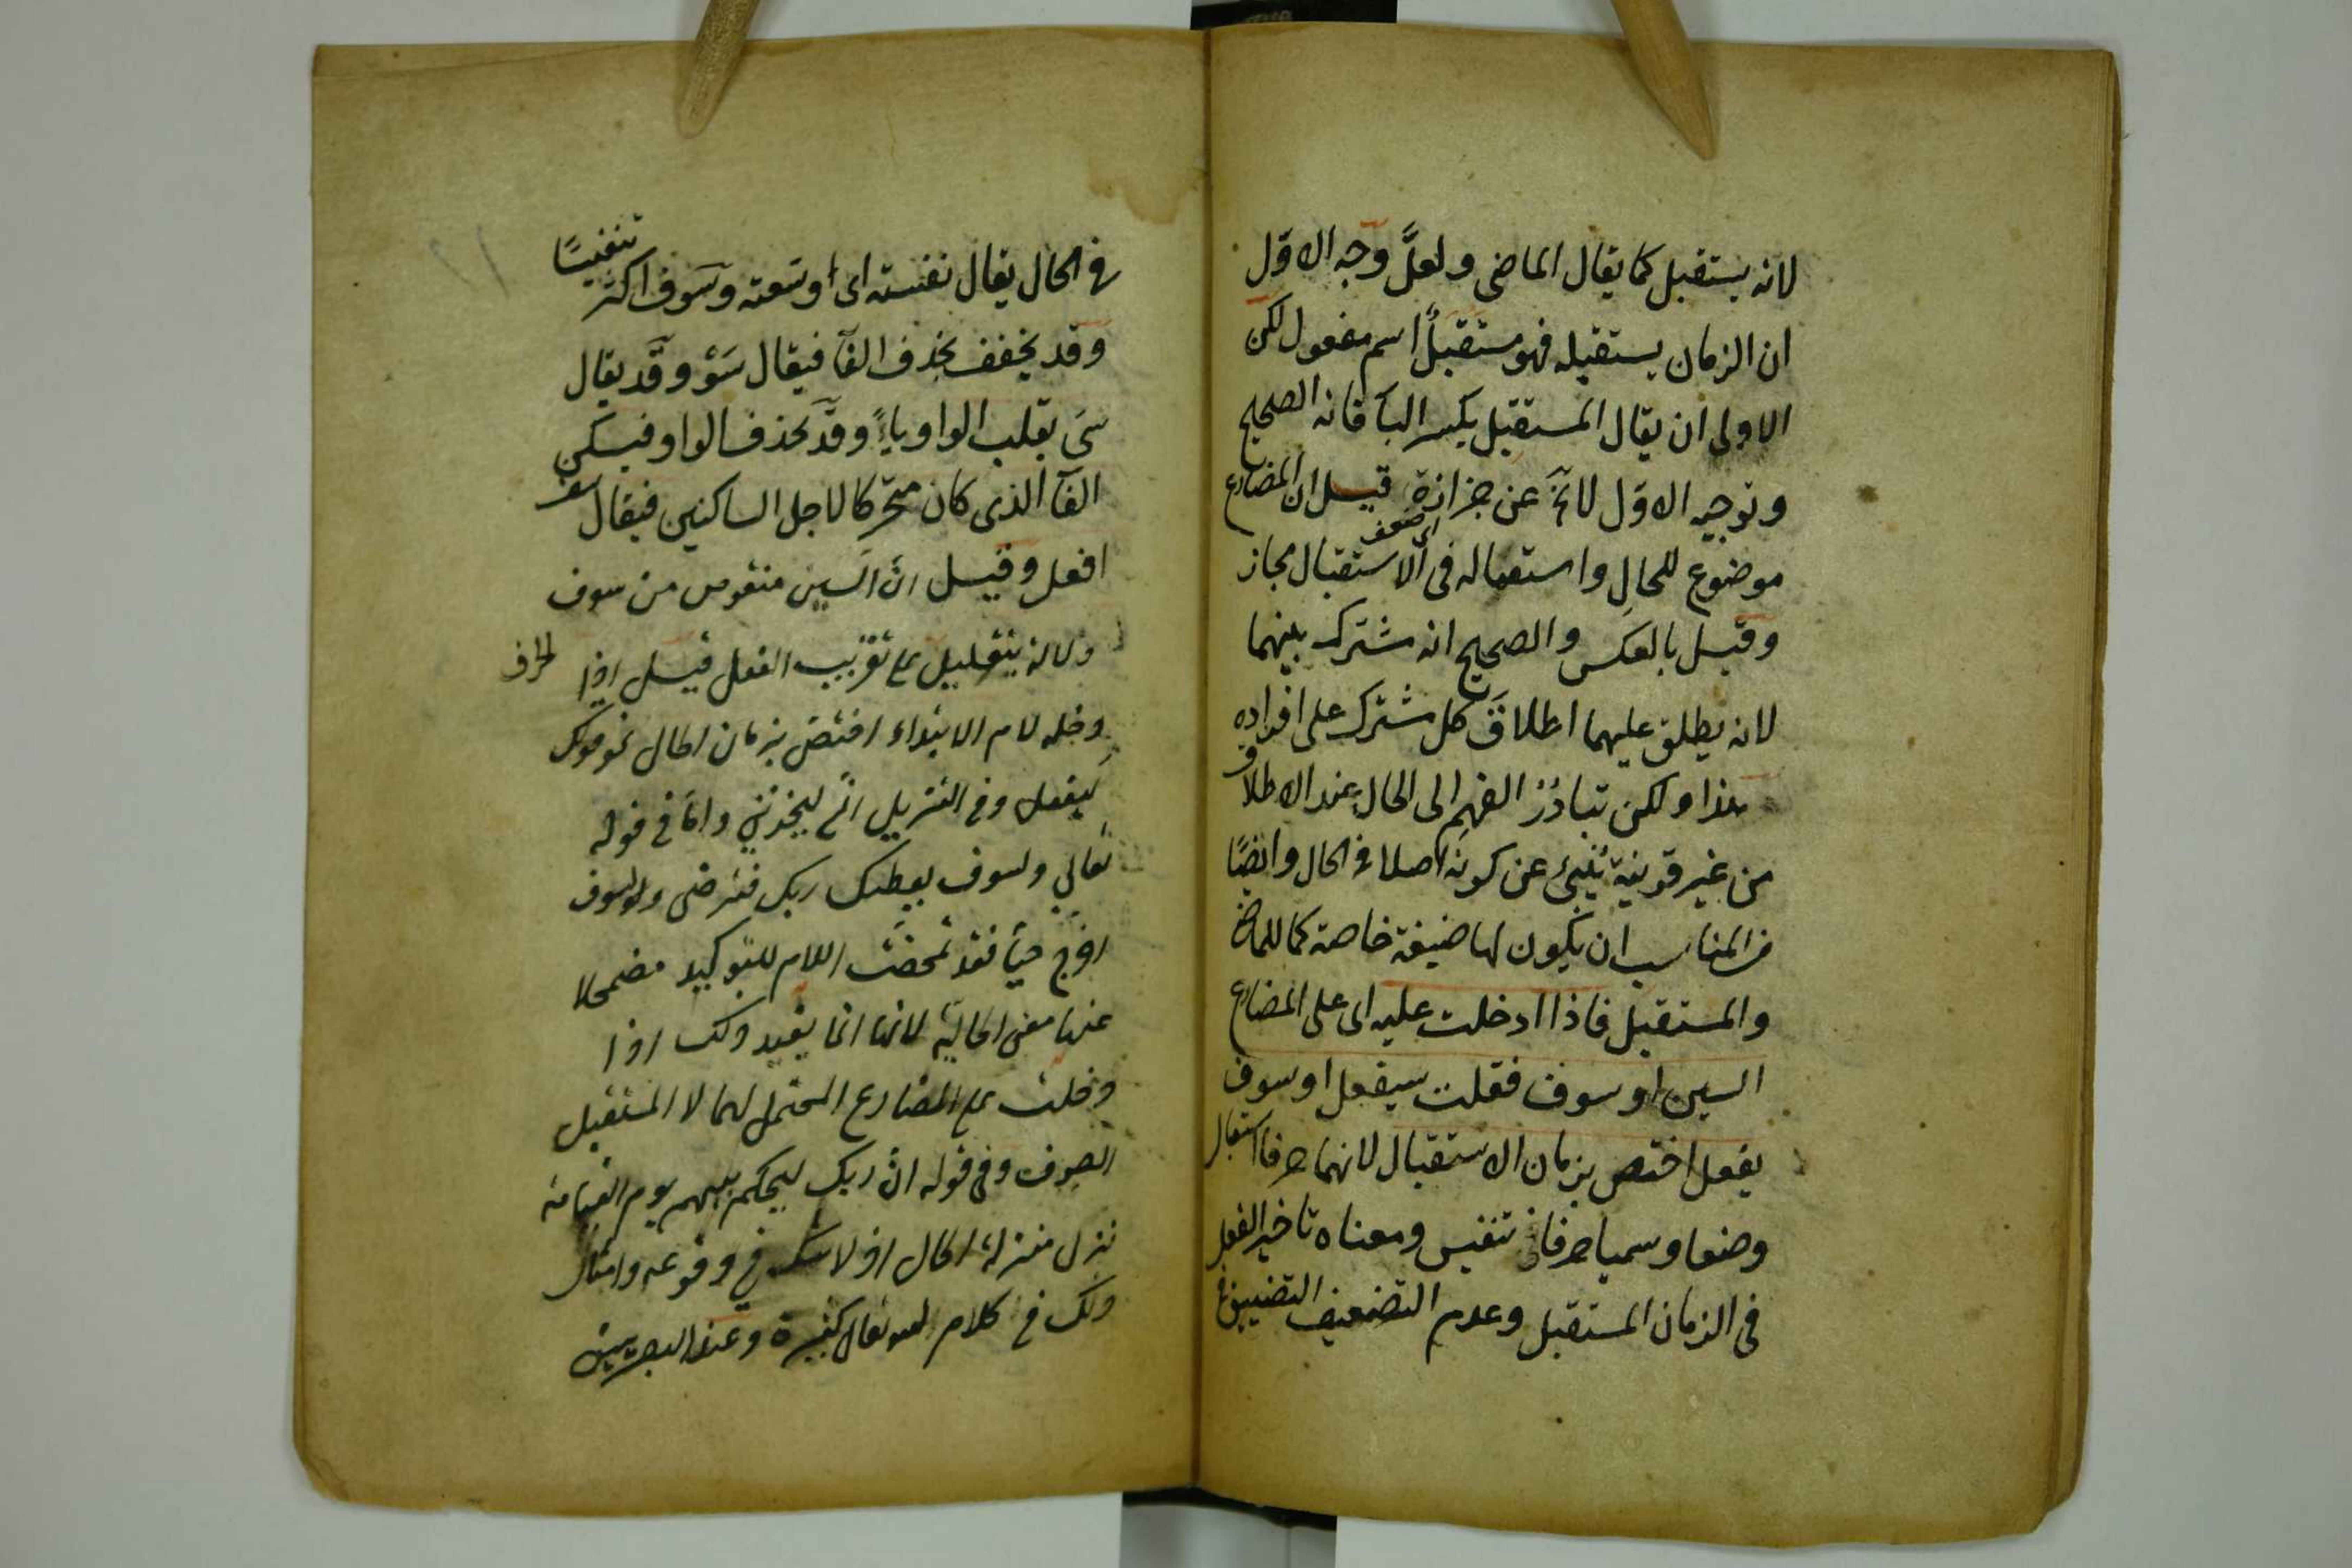 لانه يستقبل كما يقال الماضى ولعلَّ وجه الاوّل
ان الزمان يستقبله فهو مستقبلٌ اسم مفعول لكن
الاولى ان يقال المستقبل بكسر الباء فانه الصحيح
وتوجيه الاوّل لا يخ عن جزازة قيل ان المضارع
اى ضعف
موضوع للحال واستعماله فى الاستقبال مجاز
وقيل بالعكس والصحيح انه مشترك بينهما
لانه يطلق عليهما اطلاقَ كل مشترك على افراده
هذا ولكن تبادُرُ الفهم الى الحال عند الاطلاق
من غير قرينة يُنبئ عن كونه اصلا فى الحال وايضًا
من المناسب ان يكون لها صيغة خاصة كما للماضى
والمستقبل فاذا ادخلت عليه اى على المضارع
السين او سوف فقلت سيفعل او سوف
يفعل اختص بزمان الاستقبال لانهما حرفا استقبال
وضعا وسميا حرفا تنفيس ومعناه تاخير الفعل
فى الزمان المستقبل وعدم التضعيف التضييق
فى الحال يقال نفسته اى اوسعته وسوف اكثر
تنفيسًا
وقد يخفف بحذف الفآ فيقال سَوْ وقد يقال
سَىْ بقلب الواو ياءً وقد تحذف الواو فيسكن
الفآ الذى كان متحركا لاجل الساكنين فيقال سف
افعل وقيل انّ السين منقوص من سوف
دلالة بتقليل على تقريب الفعل قيل اذا
دخله لام الابتداء اختص بزمان الحال نحو قولك
ليفعل وفى التنزيل انى ليحزننى وامّا فى قوله
تعالى ولسوف يعطيك ربك فترضى ولسوف
اخرج حيّا فقد تمحضت اللام للتوكيد مضمحلا
عنها معنى الحالية لانها انما يفيد ذلك اذا
دخلت على المضارع المحتمل لهما لا المستقبل
الصرف وفى قوله انّ ربك ليحكم بينهم يوم القيامة
نزل منزلة الحال اذ لا شك فى وقوعه وامثال
ذلك فى كلام الله تعالى كثيرة وعند البصريين